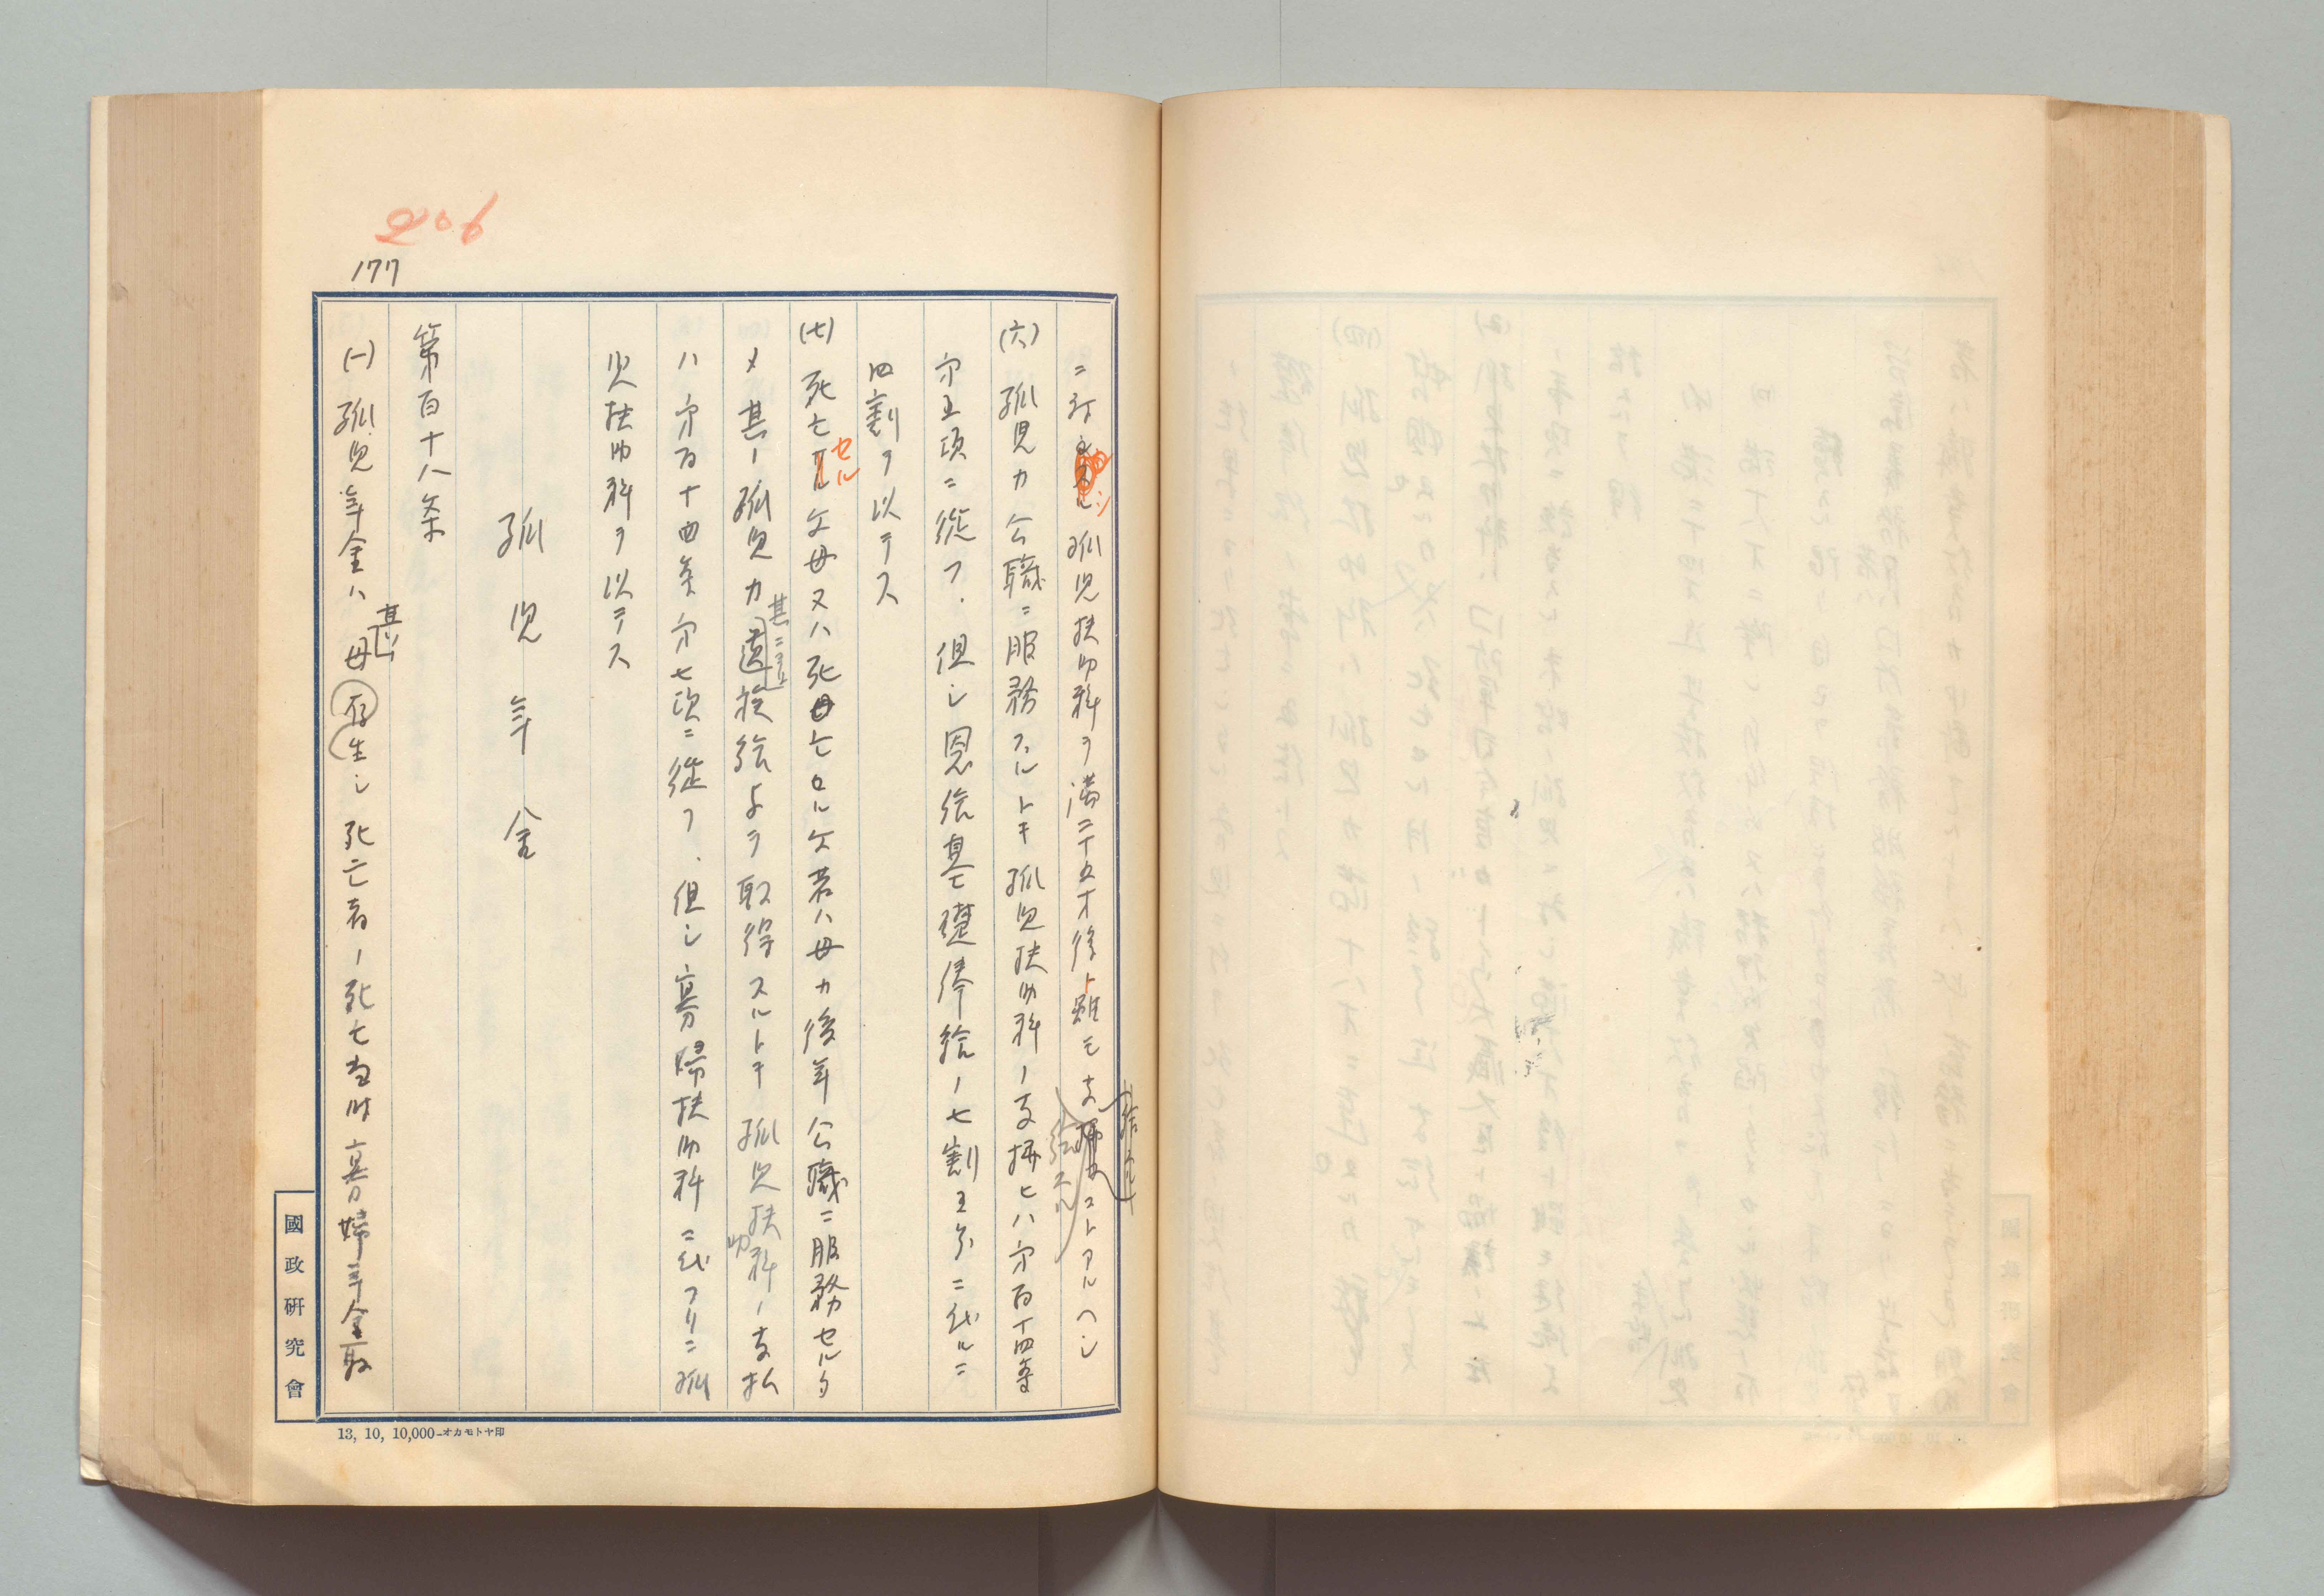 506
177
ニ対シ孤児扶助料ヲ満二十四才後ト雖モ支給スルコトアルヘシ
(六) 孤児カ公職ニ服務スルトキ孤児扶助料ノ支払ヒハ第百十四条
第五項ニ従フ.但シ恩給基礎俸給ノ七割五分ニ代ルニ
四割ヲ以テス
(七) 死亡セル父母又ハ死亡セル父若ハ母カ後年公職ニ服務セル為
メ其ノ孤児カ其ニヨリ遺族給与ヲ取得スルトキ孤児扶助料ノ支払
ハ第百十四条第七項ニ従フ.但シ寡婦扶助料ニ代フルニ孤
児扶助料ヲ以テス
孤児年金
第百十八条
(一) 孤児年金ハ其ノ母生存シ死亡者ノ死亡当時寡婦年金取
國政研究會
13, 10, 10,000—オカモトヤ印